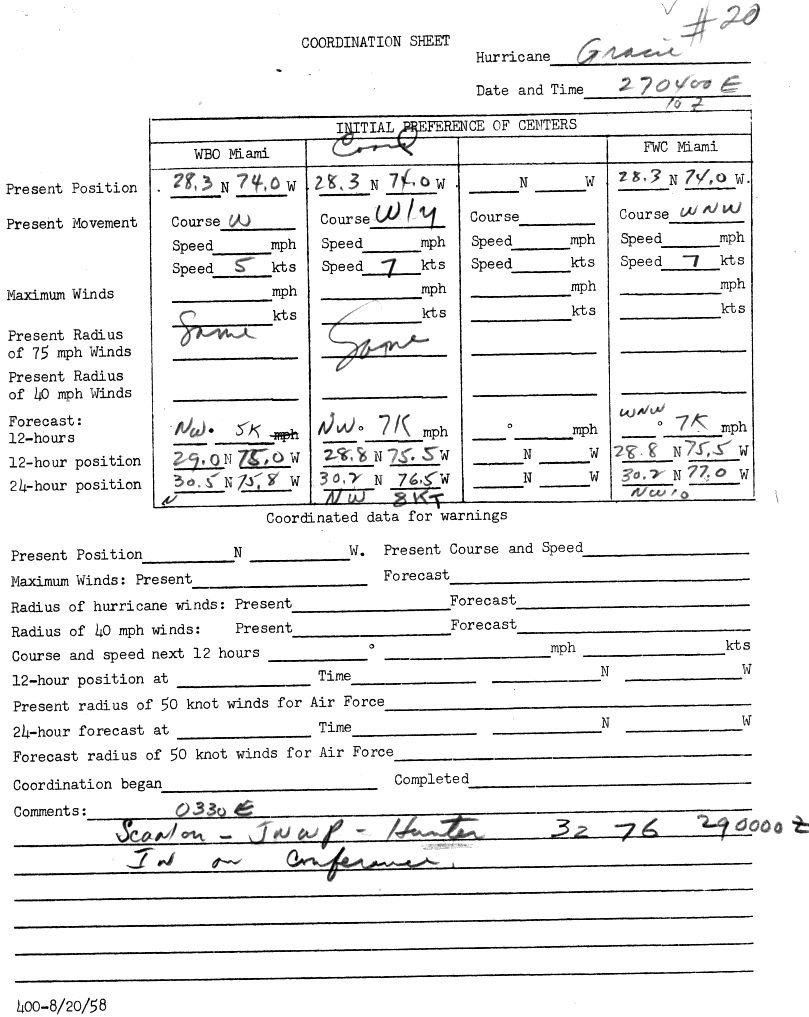 #20
COORDINATION SHEET
Hurricane Gracie
Date and Time 270400 E
10 Z
INITIAL PREFERENCE OF CENTERS
WBO Miami FWC Miami
Present Position 28.3 N 74.0 W 28.3 N 74.0 W N W 28.3 N 74.0 W.
Present Movement Course W Course W/y Course Course WNW
Speed mph Speed mph Speed mph Speed mph
Speed 5 kts Speed 7 kts Speed kts Speed 7 kts
Maximum Winds mph mph mph mph
kts kts kts kts
Present Radius of 75 mph Winds Same Same
Present Radius
of 40 mph Winds
Forecast:
12-hours NW 5K mph NW ° 7K mph ° mph WNW ° 7K mph
12-hour position 29.0 N 75.0 W 28.8 N 75.5 W N W 28.8 N 75.5 W
24-hour position 30.5 N 75.8 W 30.2 N 76.5 W N W 30.2 N 77.0 W
N NW 8KT NW
Coordinated data for warnings
Present Position N W. Present Course and Speed
Maximum Winds: Present Forecast
Radius of hurricane winds: Present Forecast
Radius of 40 mph winds: Present Forecast
Course and speed next 12 hours ° mph kts
12-hour position at Time N W
Present radius of 50 knot winds for Air Force
24-hour forecast at Time N W
Forecast radius of 50 knot winds for Air Force
Coordination began Completed
Comments: 0330 E
Scanlon - JNWP - Hunter 32 76 290000 Z
In on Conference.
400-8/20/58